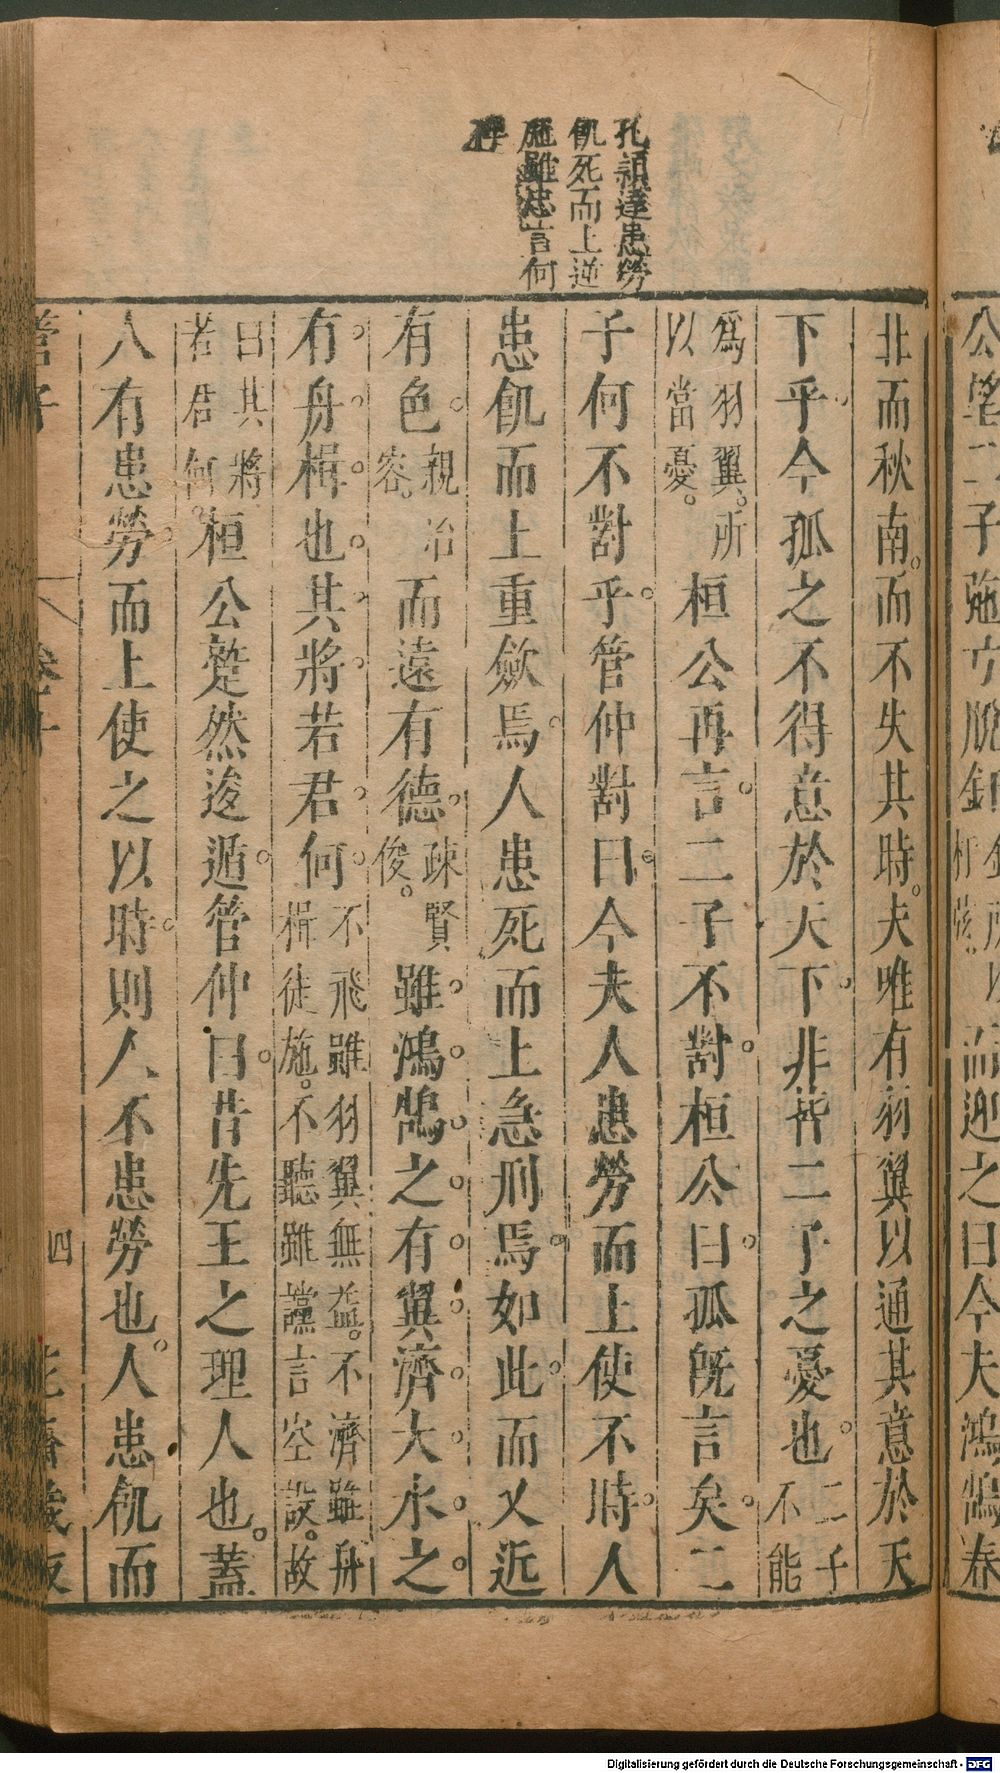 公望二子弛弓脫釬
而迎之曰今夫鴻鵠春
孔頴達患勞
飢死而上逆
施雖忠言何
北而秋南而不失其時夫唯有羽翼以通其意於天
下乎今孤之不得意於天下非皆二子之憂也二子不能
爲羽翼所以當憂桓公再言二子不對桓公曰孤既言矣二
子何不對乎管仲對曰今夫人患勞而上使不時人
患飢而上重斂焉人患死而上急刑焉如此而又近
有色親冶容而遠有德疎賢俊雖鴻鵠之有翼濟大水之
有舟楫也其將若君何不飛雖羽翼無益不濟雖舟楫徒施不聽雖讜言空設故
曰其將若君何桓公蹵然逡遁管仲曰昔先王之理人也蓋
人有患勞而上使之以時則人不患勞也人患飢而
管子
四
Digitalisierung gefördert durch die Deutsche Forschungsgemeinschaft - DFG